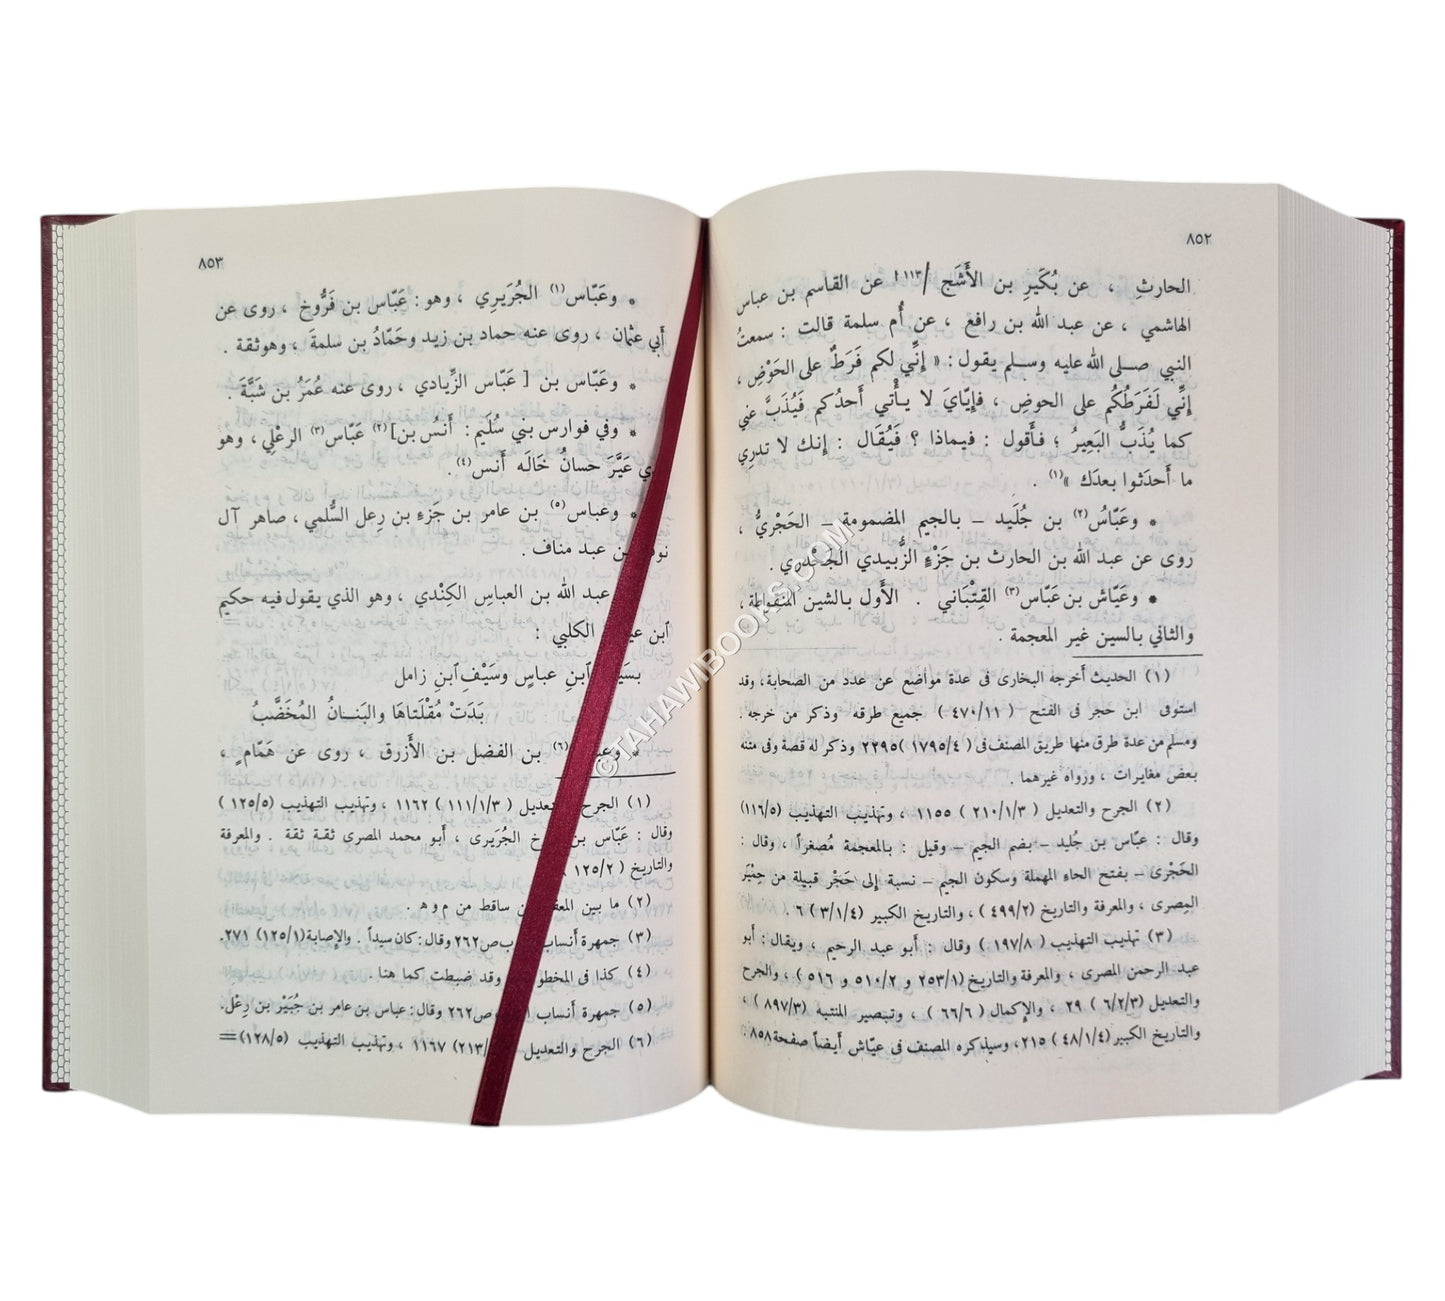 ٨٥٢
الحارثِ ، عن بُكَيرِ بن الأَشَج /١١٣ ا عن القاسم بن عباس
الهاشمي ، عن عبد الله بن رافع ، عن أُم سلمة قالت : سمعتُ
النبي صلى الله عليه وسلم يقول : « إنِّي لكم فَرَطٌ على الحَوْضِ ،
إنِّي لَفَرَطُكُم على الحوضِ ، فإيَّايَ لا يأْتي أَحدُكم فَيُذَبَّ عني
كما يُذَبُّ البَعِيرُ ؛ فأَقول : فيماذا ؟ فَيُقَال : إنك لا تدرِي
ما أَحدَثوا بعدَك »(١) .
* وعَبَّاسُ(٢) بن جُلَيد – بالجيم المضمومة – الحَجْريُّ ،
روى عن عبد الله بن الحارث بن جَزْءٍ الزُّبيدي الجَحْدرِي .
* وعَيَّاش بن عَبَّاس(٣) القِتْبَاني . الأَول بالشين المنقوطة ،
والثاني بالسين غير المعجمة .
(١) الحديث أخرجه البخارى فى عدة مواضع عن عدد من الصحابة، وقد
استوفى ابن حجر فى الفتح ( ٤٧٠/١١ ) جميع طرقه وذكر من خرجه .
ومسلم من عدة طرق منها طريق المصنف فى ( ١٧٩٥/٤) ٢٢٩٥ وذكر له قصة وفى متنه
بعض مغايرات ، ورواه غيرهما .
(٢) الجرح والتعديل ( ٢١٠/١/٣ ) ١١٥٥ ، وتهذيب التهذيب (١١٦/٥)
وقال : عبّاس بن جُليد – بضم الجيم – وقيل : بالمعجمة مُصغراً ، وقال :
الحَجْرى – بفتح الحاء المهملة وسكون الجيم – نسبة إلى حَجْر قبيلة من حِمْيَر
المِصرى ، والمعرفة والتاريخ (٤٩٩/٢ ) ، والتاريخ الكبير (٣/١/٤ ) ٦ .
(٣) تهذيب التهذيب ( ١٩٧/٨ ) وقال : أبو عبد الرحيم ، ويقال : أبو
عبد الرحمن المصرى ، والمعرفة والتاريخ (٢٥٣/١ و ٥١٠/٢ و ٥١٦ ) ، والجرح
والتعديل (٦/٢/٣ ) ٢٩ ، والإكمال ( ٦٦/٦ ) ، وتبصير المنتبه (٨٩٧/٣ ) ،
والتاريخ الكبير (٤٨/١/٤ ) ٢١٥، وسيذكره المصنف فى عيّاش أيضاً صفحة ٨٥٨ .
٨٥٣
* وعَبّاس(١) الجُرَيرِي ، وهو : عَبّاس بن فَرُّوخ ، روى عن
أَبي عثمان ، روى عنه حماد بن زيد وحَمَّادُ بن سلمةَ ، وهو ثقة .
* وعَبّاس بن [ عَبّاس الزِّيادي ، روى عنه عُمَرُ بن شَبَّةَ .
* وفي فوارس بني سُلَيم : أَنسُ بن](٢) عَبّاس(٣) الرعْلِي ، وهو
عَيَّرَ حسانُ خَالَه أَنس(٤).
* وعَباس(٥) بن عامر بن جَزءِ بن رِعل السُّلمي ، صاهر آل
بن عبد مناف .
عبد الله بن العباسِ الكِنْدي ، وهو الذي يقول فيه حكيم
ابن الكلبي :
ابنِ عباسٍ وسَيْفِ ابنِ زامل
بَدَتْ مُقْلَتاهَا والبَنانُ المُخَضَّبُ
* (٦) بن الفضل بن الأَزرق ، روى عن هَمّامٍ ،
(١) الجرح والتعديل ( ١١١/١/٣ ) ١١٦٢ ، وتهذيب التهذيب (١٢٥/٥ )
وقال : عَبّاس بن الجُرَيرى ، أبو محمد المصرى ثقة ثقة . والمعرفة
والتاريخ ( ١٢٥/٢
(٢) ما بين ساقط من م و ه .
(٣) جمهرة أنساب ص ٢٦٢ وقال : كان سيداً . والإصابة (١٢٥/١) ٢٧١.
(٤) كذا فى وقد ضبطت كما هنا .
(٥) جمهرة أنساب ص ٢٦٢ وقال: عباس بن عامر بن جُبَيْر بن رِعْل.
(٦) الجرح والتعديل ٢١٣/ ) ١١٦٧ ، وتهذيب التهذيب (١٢٨/٥)=
©TAHAWIBOOKS.COM